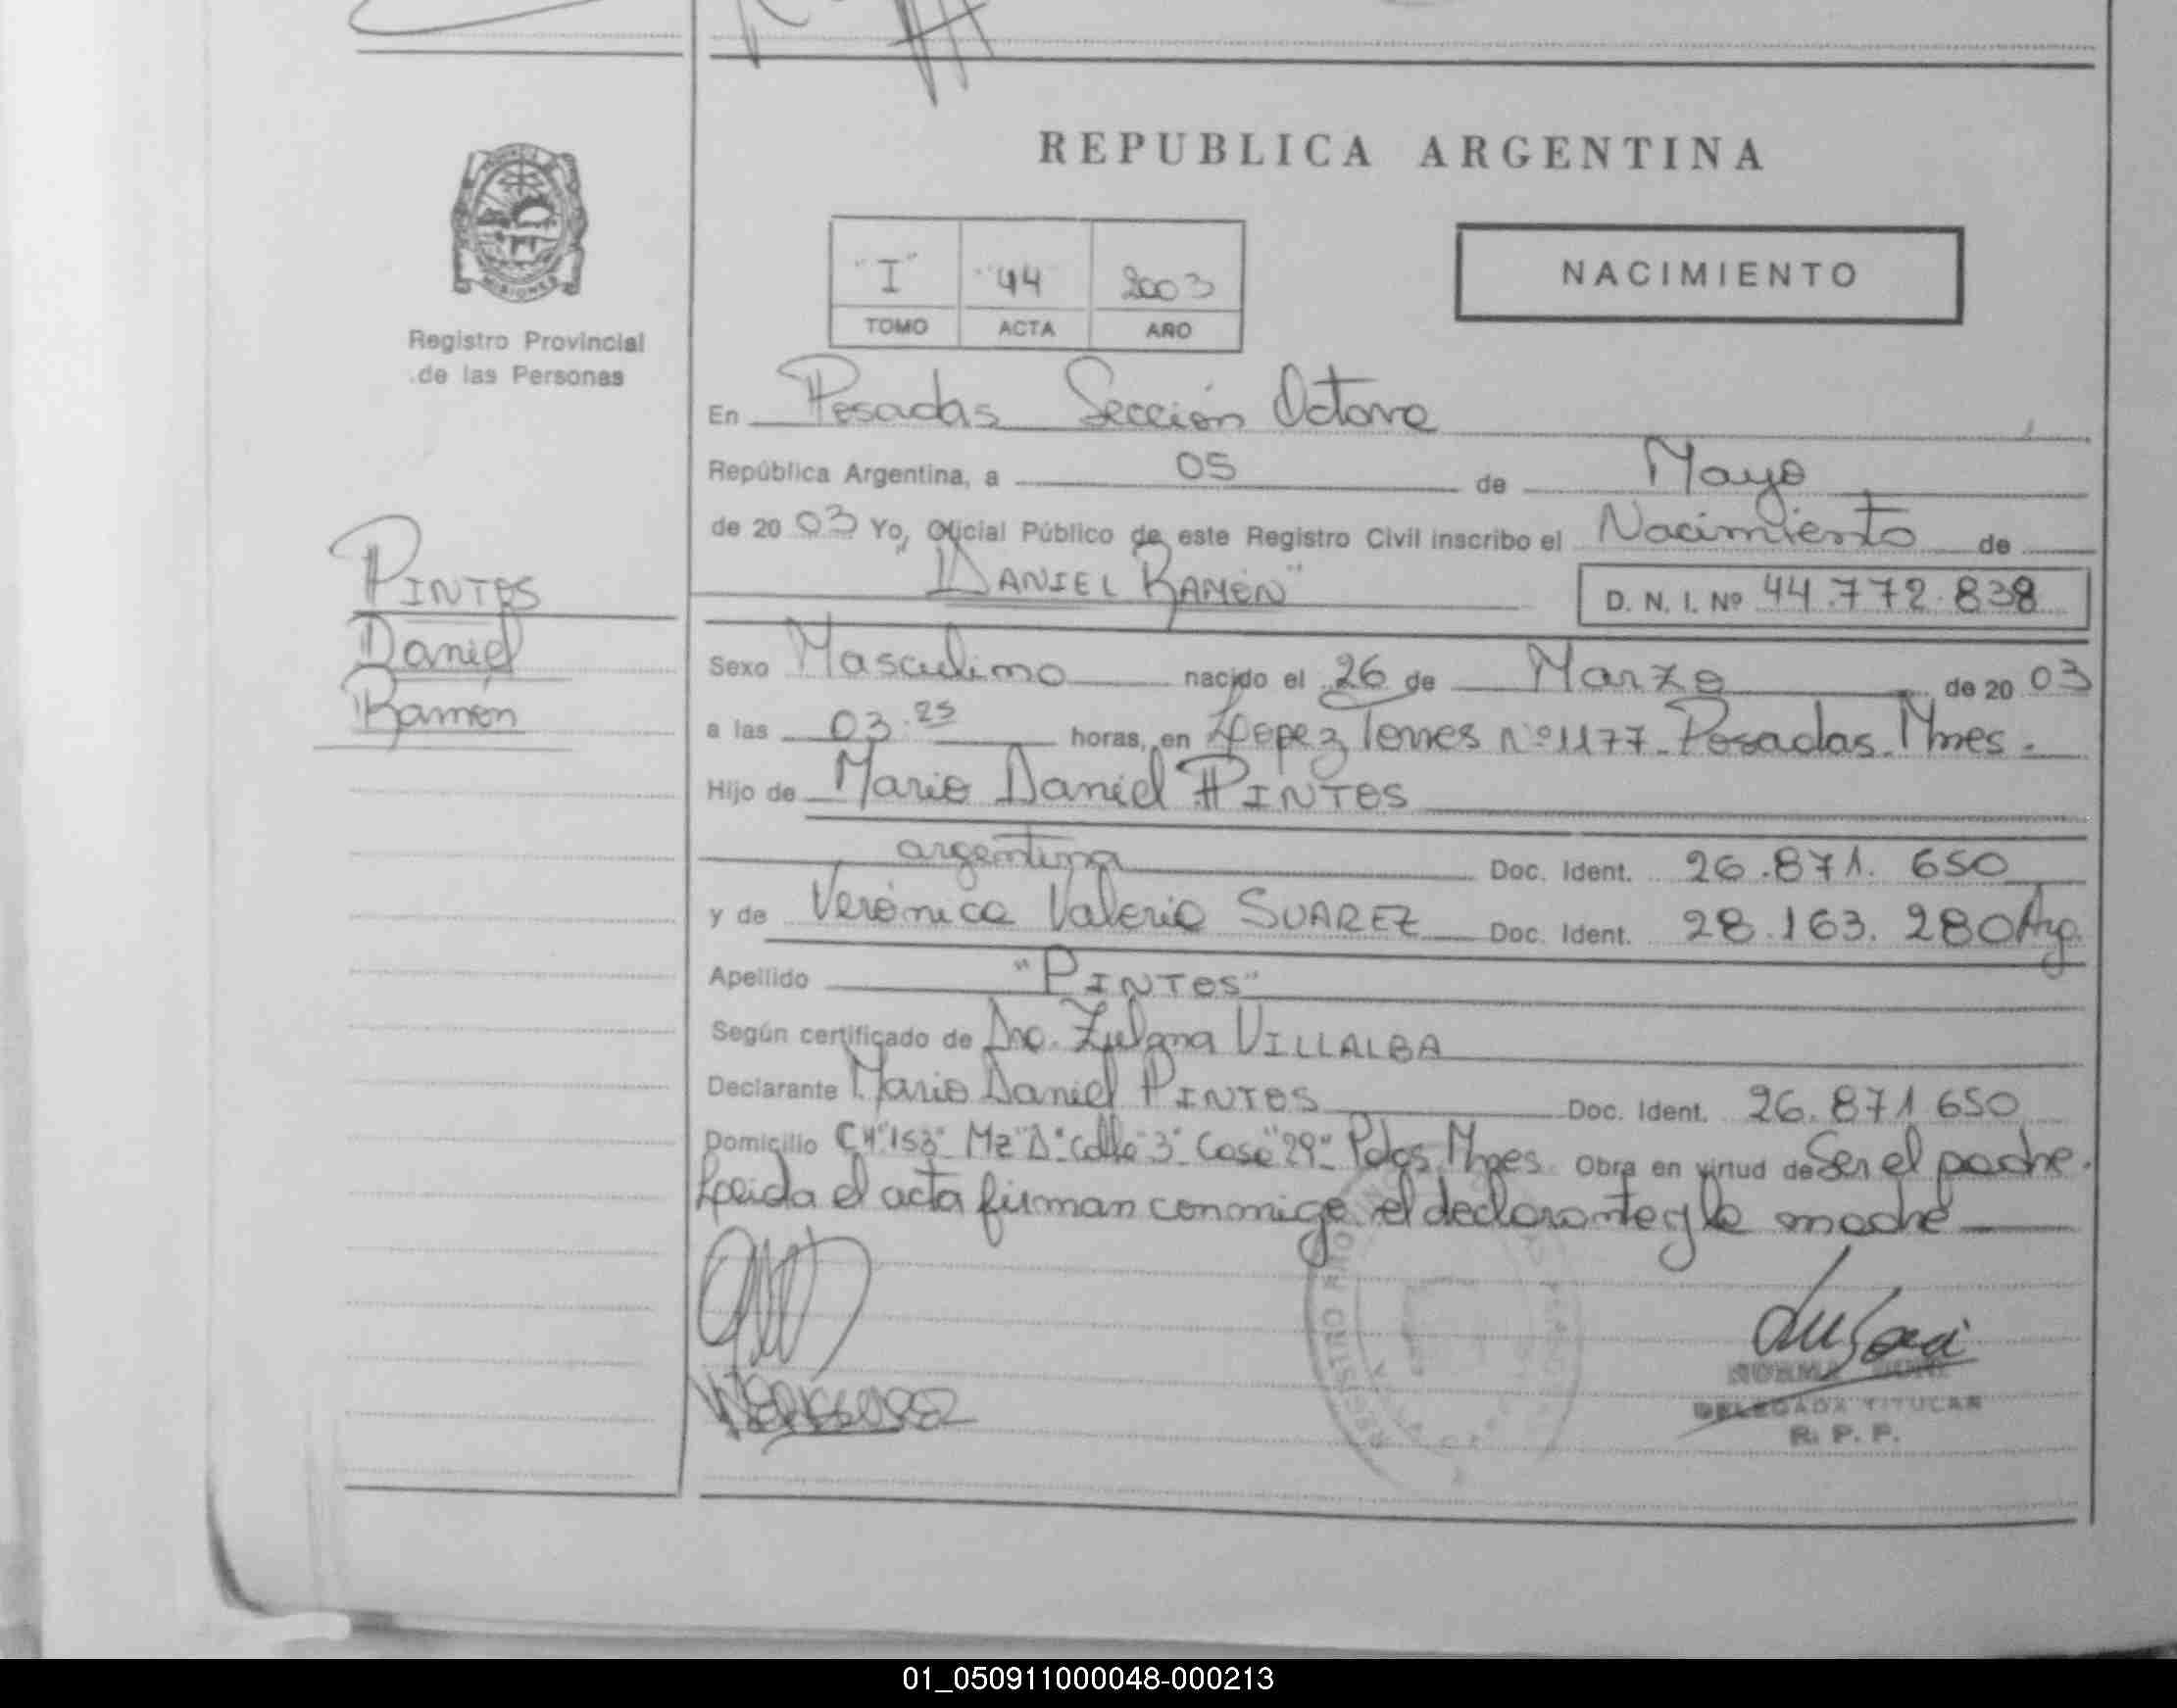 REPUBLICA ARGENTINA
"I" 44 2003
TOMO ACTA AÑO
NACIMIENTO
Registro Provincial
de las Personas
PINTOS
Daniel
Ramón
En Posadas Sección Octava
República Argentina, a 05 de Mayo
de 20 03 Yo, Oficial Público de este Registro Civil inscribo el Nacimiento de
"DANIEL RAMÓN" D. N. I. Nº 44.772.838
Sexo Masculino nacido el 26 de Marzo de 20 03
a las 03.25 horas, en López Torres Nº 1177- Posadas. Mnes.
Hijo de Mario Daniel PINTOS
argentina Doc. Ident. 26.871.650
y de Verónica Valeria SUAREZ Doc. Ident. 28.163.280 Arg.
Apellido "PINTOS"
Según certificado de Dra. Zulma VILLALBA
Declarante Mario Daniel PINTOS Doc. Ident. 26.871.650
Domicilio CH"153" Mz"D" Calle"3" Casa"29" Pdas. Mnes. Obra en virtud de Ser el padre.
Leida el acta firman conmigo el declarante y la madre
NORMA
DELEGADA TITULAR
R. P. P.
01_050911000048-000213